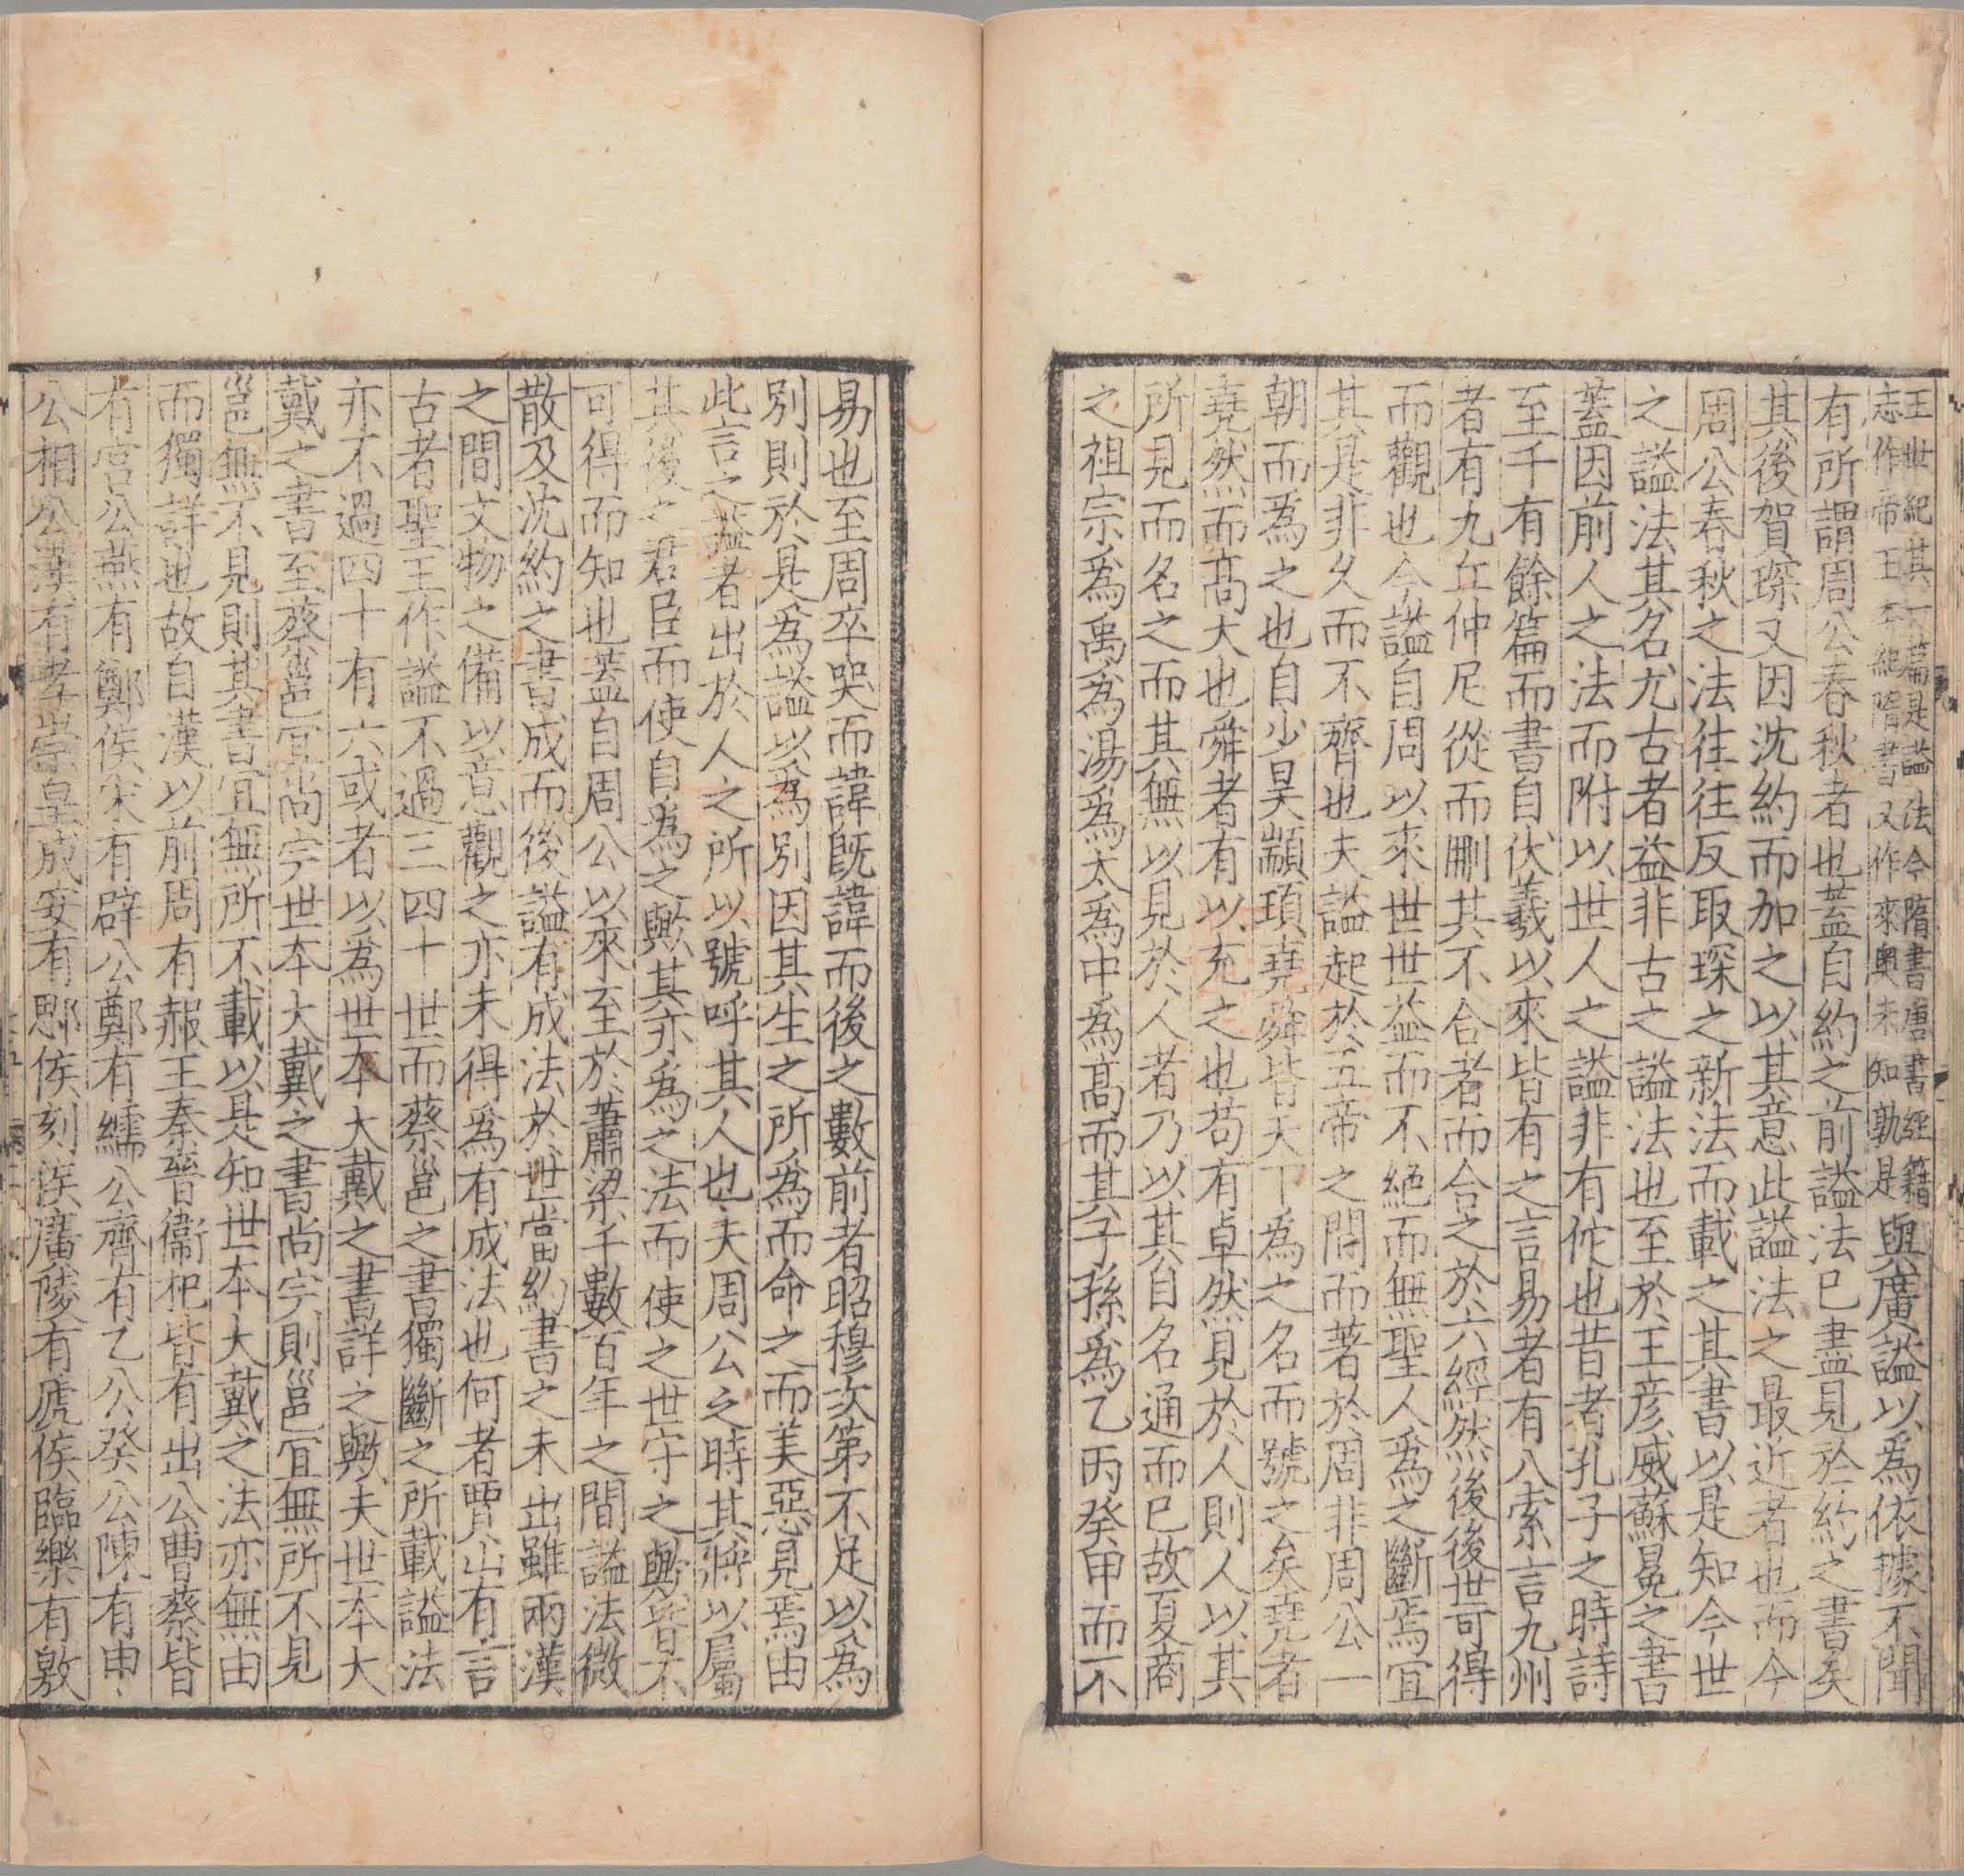 王世紀其一篇是謚法今隋書唐書經籍
志作帝王本紀隋書又作來奧未知孰是
與廣謚以為依據不聞
有所謂周公春秋者也蓋自約之前謚法已盡見於約之書矣
其後賀琛又因沈約而加之以其意此謚法之最近者也而今
周公春秋之法往往反取琛之新法而載之其書以是知今世
之謚法其名尤古者益非古之謚法也至於王彥威蘇冕之書
蓋因前人之法而附以世人之謚非有佗也昔者孔子之時詩
至千有餘篇而書自伏羲以來皆有之言易者有八索言九州
者有九丘仲尼從而刪其不合者而合之於六經然後後世可得
而觀也今謚自周以來世世益而不絕而無聖人為之斷焉宜
其是非久而不齊也夫謚起於五帝之間而著於周非周公一
朝而為之也自少昊顓頊堯舜皆天下為之名而號之矣堯者
堯然而高大也舜者有以充之也苟有卓然見於人則人以其
所見而名之而其無以見於人者乃以其自名通而已故夏商
之祖宗為禹為湯為太為中為高而其子孫為乙丙癸甲而不
易也至周卒哭而諱旣諱而後之數前者昭穆次第不足以為
別則於是為謚以為別因其生之所為而命之而美惡見焉由
此言之謚者出於人之所以號呼其人也夫周公之時其將以屬
其後之君臣而使自為之歟其亦為之法而使之世守之歟皆不
可得而知也蓋自周公以來至於蕭梁千數百年之間謚法微
散及沈約之書成而後謚有成法於世當約書之未出雖兩漢
之間文物之備以意觀之亦未得為有成法也何者賈山有言
古者聖王作謚不過三四十世而蔡邕之書獨斷之所載謚法
亦不過四十有六或者以為世本大戴之書詳之歟夫世本大
戴之書至蔡邕宜尚完世本大戴之書尚完則邕宜無所不見
邕無不見則其書宜無所不載以是知世本大戴之法亦無由
而獨詳也故自漢以前周有赧王秦晉衞杞皆有出公曹蔡皆
有宮公燕有鄭侯宋有辟公鄭有繻公齊有乙公癸公陳有申
公相公漢有孝崇皇成安有郹侯刻侯廣陵有虒侯臨樂有敫